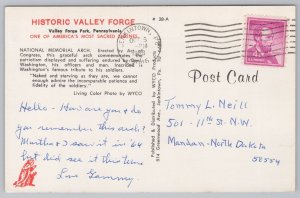 HISTORIC VALLEY FORGE
Valley Forge Park, Pennsylvania
ONE OF AMERICA'S MOST SACRED SHRINES
# 28-A
NATIONAL MEMORIAL ARCH. Erected by Act of
Congress, this great arch commemorates the
patriotism displayed and suffering endured by General
Washington, his officers and men. Inscribed is
Washington's famous tribute to his soldiers.
"Naked and starving as they are, we cannot
enough admire the incomparable patience and fidelity
of the soldiers."
Living Color Photo by WYCO
Post Card
Hello - How are you & do
you remember this arch?
Martha & I saw it in '64
but did see it this time
Love Grammy
Published & Distributed by WYCO
Tommy L. Neill
501 - 11th St. N.W.
Mandan - North Dakota
58554